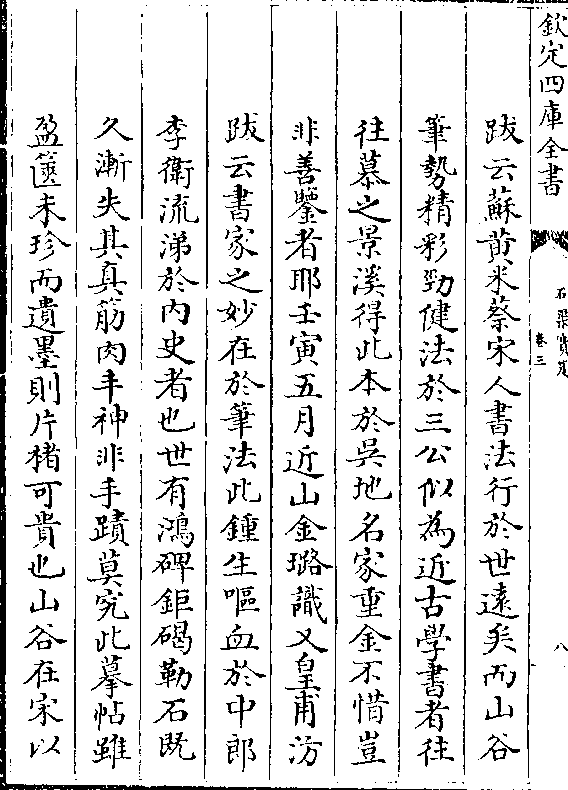 欽定四庫全書
石渠寶笈
卷三
八
跋云蘇黄米蔡宋人書法行於世遠矣而山谷
筆勢精彩勁健法於三公似為近古學書者往
往慕之景溪得此本於吳地名家重金不惜豈
非善鑒者耶壬寅五月近山金璐識又皇甫汸
跋云書家之妙在於筆法此鍾生嘔血於中郎
李衛流涕於内史者也世有鴻碑鉅碣勒石既
久漸失其真筋肉丰神非手蹟莫究此摹帖雖
盈篋未珍而遺墨則片楮可貴也山谷在宋以